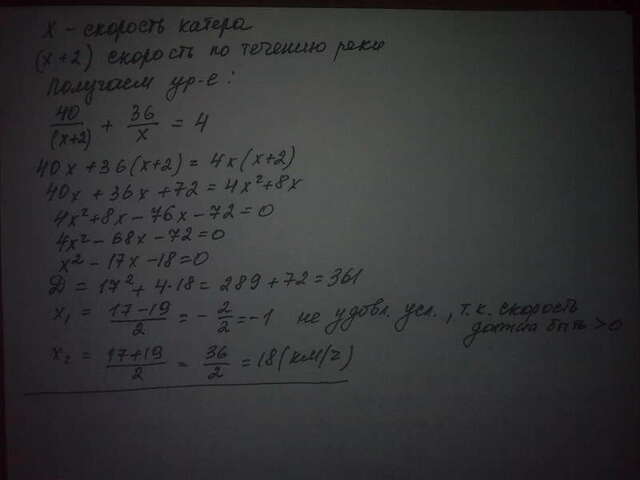 x - скорость катера
(x+2) скорость по течению реки
Получаем ур-е:
40/(x+2) + 36/x = 4
40x + 36(x+2) = 4x(x+2)
40x + 36x + 72 = 4x²+8x
4x²+8x - 76x - 72 = 0
4x² - 68x - 72 = 0
x² - 17x - 18 = 0
D = 17² + 4·18 = 289 + 72 = 361
x₁ = (17-19)/2 = -2/2 = -1 не удовл. усл., т.к. скорость
должна быть > 0
x₂ = (17+19)/2 = 36/2 = 18 (км/ч)